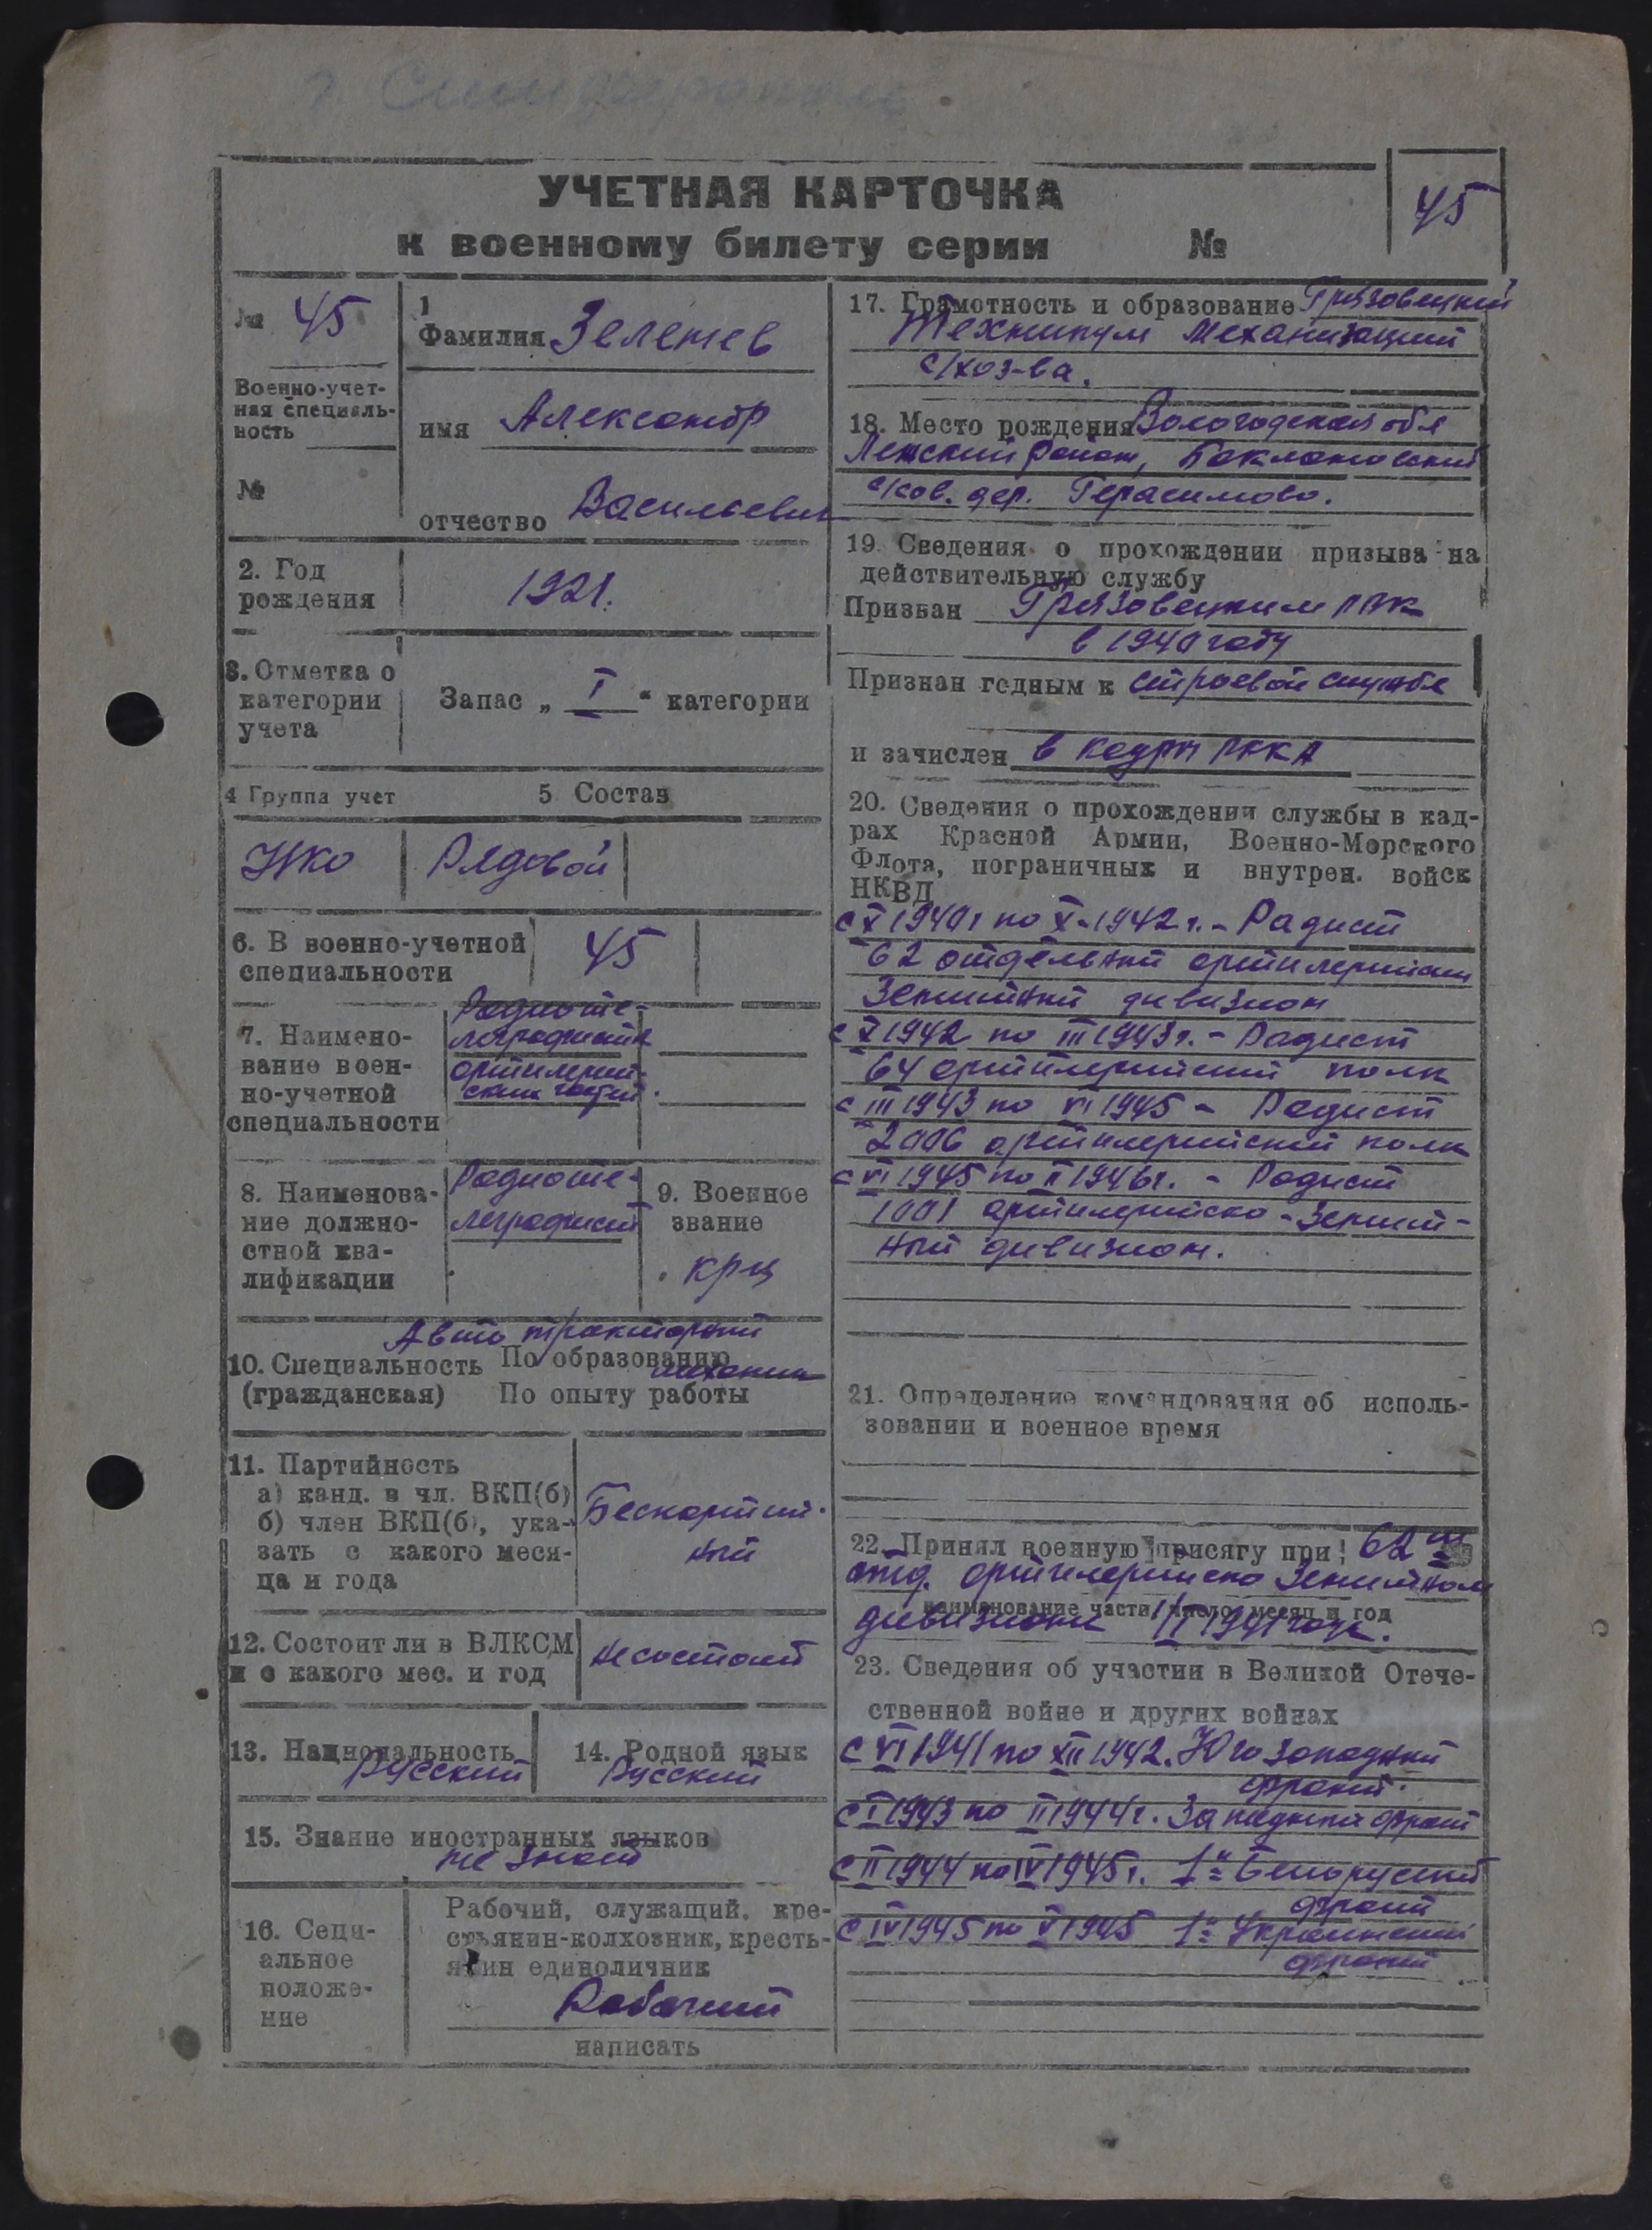 г. Симферополь
УЧЕТНАЯ КАРТОЧКА
к военному билету серии №
45
№ 45
Военно-учет-
ная специаль-
ность
№
1
Фамилия Зеленев
имя Александр
отчество Васильевич
2. Год
рождения
1921.
3. Отметка о
категории
учета
Запас „ I “ категории
4 Группа учет
5 Состав
НКО
Рядовой
6. В военно-учетной
специальности
45
7. Наимено-
вание воен-
но-учетной
специальности
Радиоте-
леграфисты
артилерий-
ских частей.
8. Наименова-
ние должно-
стной ква-
лификации
Радиоте-
леграфист
9. Военное
звание
крц
Авто тракторный
10. Специальность По образованию
механик
(гражданская) По опыту работы
11. Партийность
а) канд. в чл. ВКП(б)
б) член ВКП(б), ука-
зать с какого меся-
ца и года
Беспартий-
ный
12. Состоит ли в ВЛКСМ
и с какого мес. и год
не состоит
13. Национальность
Русский
14. Родной язык
Русский
15. Знание иностранных языков
не знает
16. Соци-
альное
положе-
ние
Рабочий, служащий, кре-
стьянин-колхозник, кресть-
янин единоличник
Рабочий
написать
17. Грамотность и образование Грязовецкий
Техникум механизации
с/хоз-ва.
18. Место рождения Вологодская обл
Ленский район, Баклановский
с/сов. дер. Герасимово.
19. Сведения о прохождении призыва на
действительную службу
Призван Грязовецким РВК
в 1940 году
Признан годным к строевой службе
и зачислен в кадры РККА
20. Сведения о прохождении службы в кад-
рах Красной Армии, Военно-Морского
Флота, пограничных и внутрен. войск
НКВД
с X 1940г по X-1942 г. - Радист
62 отдельный артилерийский
Зенитный дивизион
с X 1942 по III 1943г. - Радист
64 артилерийский полк
с III 1943 по VI 1945 - Радист
2006 артилерийский полк
с VI 1945 по II 1946г. - Радист
1001 артилерийско-Зенит-
ный дивизион.
21. Определение командования об исполь-
зовании и военное время
22. Принял военную присягу при: 62 ом
отд. артилерийско Зенитном
наименование части, число, месяц и год
дивизионе 1/I 1941 года.
23. Сведения об участии в Великой Отече-
ственной войне и других войнах
с VI 1941 по XII 1942. Юго Западный
фронт.
с I 1943 по II 1944г. Западный фронт
с II 1944 по IV 1945г. 1й Белоруский
фронт
с IV 1945 по V 1945 1й Украинский
фронт